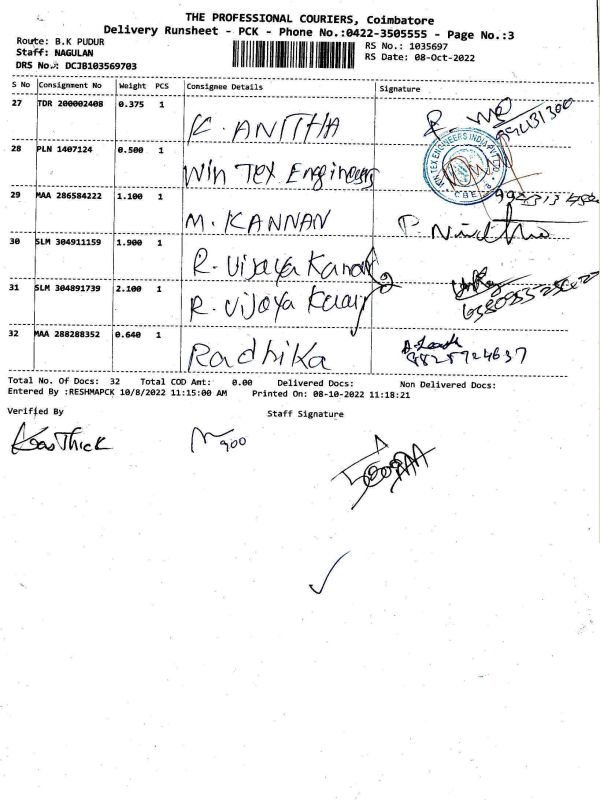 THE PROFESSIONAL COURIERS, Coimbatore
Delivery Runsheet - PCK - Phone No.:0422-3505555 - Page No.:3
Route: B.K PUDUR RS No.: 1035697
Staff: NAGULAN RS Date: 08-Oct-2022
DRS No.: DCJB103569703
S No Consignment No Weight PCS Consignee Details Signature
27 TDR 200002408 0.375 1 K. ANITHA
28 PLN 1407124 0.500 1 Win Tex Engineers
29 MAA 286584222 1.100 1 M. KANNAN
30 SLM 304911159 1.900 1 R. Vijaya Kanan
31 SLM 304891739 2.100 1 R. Vijaya
32 MAA 288288352 0.640 1 Radhika
Total No. Of Docs: 32 Total COD Amt: 0.00 Delivered Docs: Non Delivered Docs:
Entered By :RESHMAPCK 10/8/2022 11:15:00 AM Printed On: 08-10-2022 11:18:21
Verified By Staff Signature
KasThick